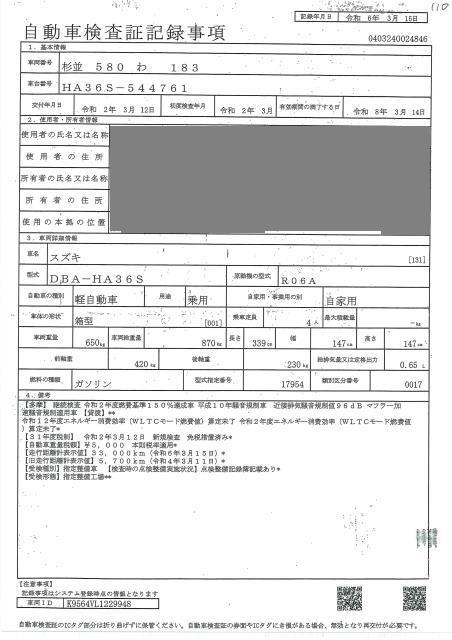 110
記録年月日 令和 6年 3月 15日
自動車検査証記録事項
0403240024846
1. 基本情報
車両番号 杉並 580 わ 183
車台番号 HA36S-544761
交付年月日 令和 2年 3月 12日 初度検査年月 令和 2年 3月 有効期間の満了する日 令和 8年 3月 14日
2. 使用者・所有者情報
使用者の氏名又は名称
使用者の住所
所有者の氏名又は名称
所有者の住所
使用の本拠の位置
3. 車両詳細情報
車名 スズキ [131]
型式 DBA-HA36S 原動機の型式 R06A
自動車の種別 軽自動車 用途 乗用 自家用・事業用の別 自家用
車体の形状 箱型 [001] 乗車定員 4人 最大積載量 -kg
車両重量 650kg 車両総重量 870kg 長さ 339cm 幅 147cm 高さ 147cm
前軸重 420kg 後軸重 230kg 総排気量又は定格出力 0.65 L
燃料の種類 ガソリン 型式指定番号 17954 類別区分番号 0017
4. 備考
【多摩】 継続検査 令和2年度燃費基準150%達成車 平成10年騒音規制車 近接排気騒音規制値96dB マフラー加
速騒音規制適用車 【貸渡】**
令和12年度エネルギー消費効率(WLTCモード燃費値)算定未了 令和2年度エネルギー消費効率(WLTCモード燃費値
)算定未了*
【31年度税制】 令和2年3月12日 新規検査 免税措置済み*
【自動車重量税額】¥5,000 本則税率適用*
【走行距離計表示値】33,000km(令和6年3月15日)*
【旧走行距離計表示値】5,700km(令和4年3月11日)*
【受検種別】指定整備車 【検査時の点検整備実施状況】点検整備記録簿記載あり*
【受検形態】指定整備工場**
【注意事項】
記録事項はシステム登録時点の情報となります
車両ID K9564VL1229948
自動車検査証のICタグ部分は折り曲げずに保管ください。自動車検査証の券面やICタグにき損がある場合、無効となり再交付が必要です。